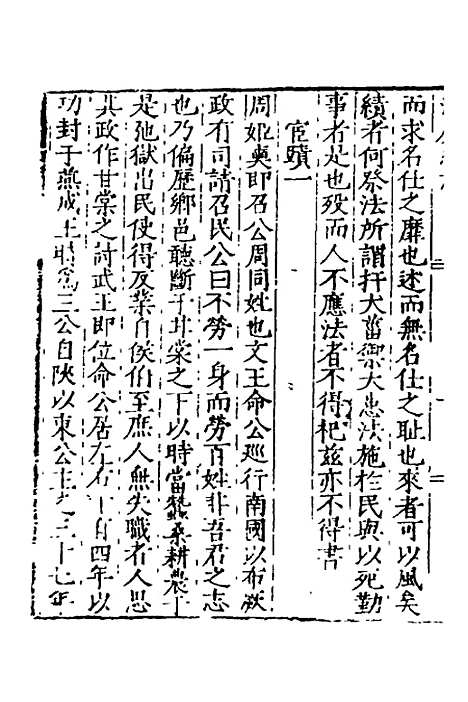 而求名仕之靡也述而無名仕之耻也來者可以風矣
績者何祭法所謂扞大菑禦大患法施於民與以死勤
事者是也歿而人不應法者不得祀茲亦不得書
宦蹟一
周姬奭即召公周同姓也文王命公廵行南國以布
政有司請召民公曰不勞一身而勞百姓非吾君之志
也乃徧歷鄉邑聽斷于甘棠之下以時當蠶桑耕農于
是弛獄出民使得反業自侯伯至庶人無失職者人思
其政作甘棠之詩武王即位命公居左右十有四年以
功封于燕成王時為三公自陝以東公主之三十七年